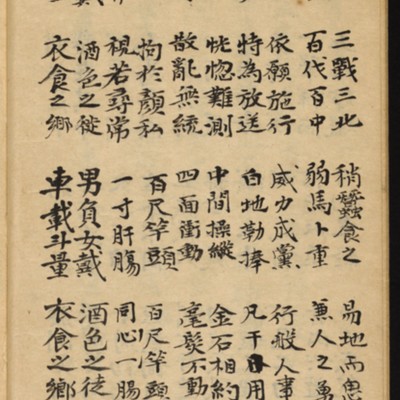 三戰三北
百代百中
依願施行
特為放送
恍惚難測
散亂無統
拘於顏私
視若尋常
酒色之徒
衣食之鄉
稍蠶食之
弱馬卜重
威力成黨
白地勒捧
中間操縱
四面衝動
百尺竿頭
一寸肝腸
男負女戴
車載斗量
易地而思
兼人之勇
行般人事
凡干用
金石相約
毫髮不動
百尺竿頭
同心一腸
酒色之徒
衣食之鄉